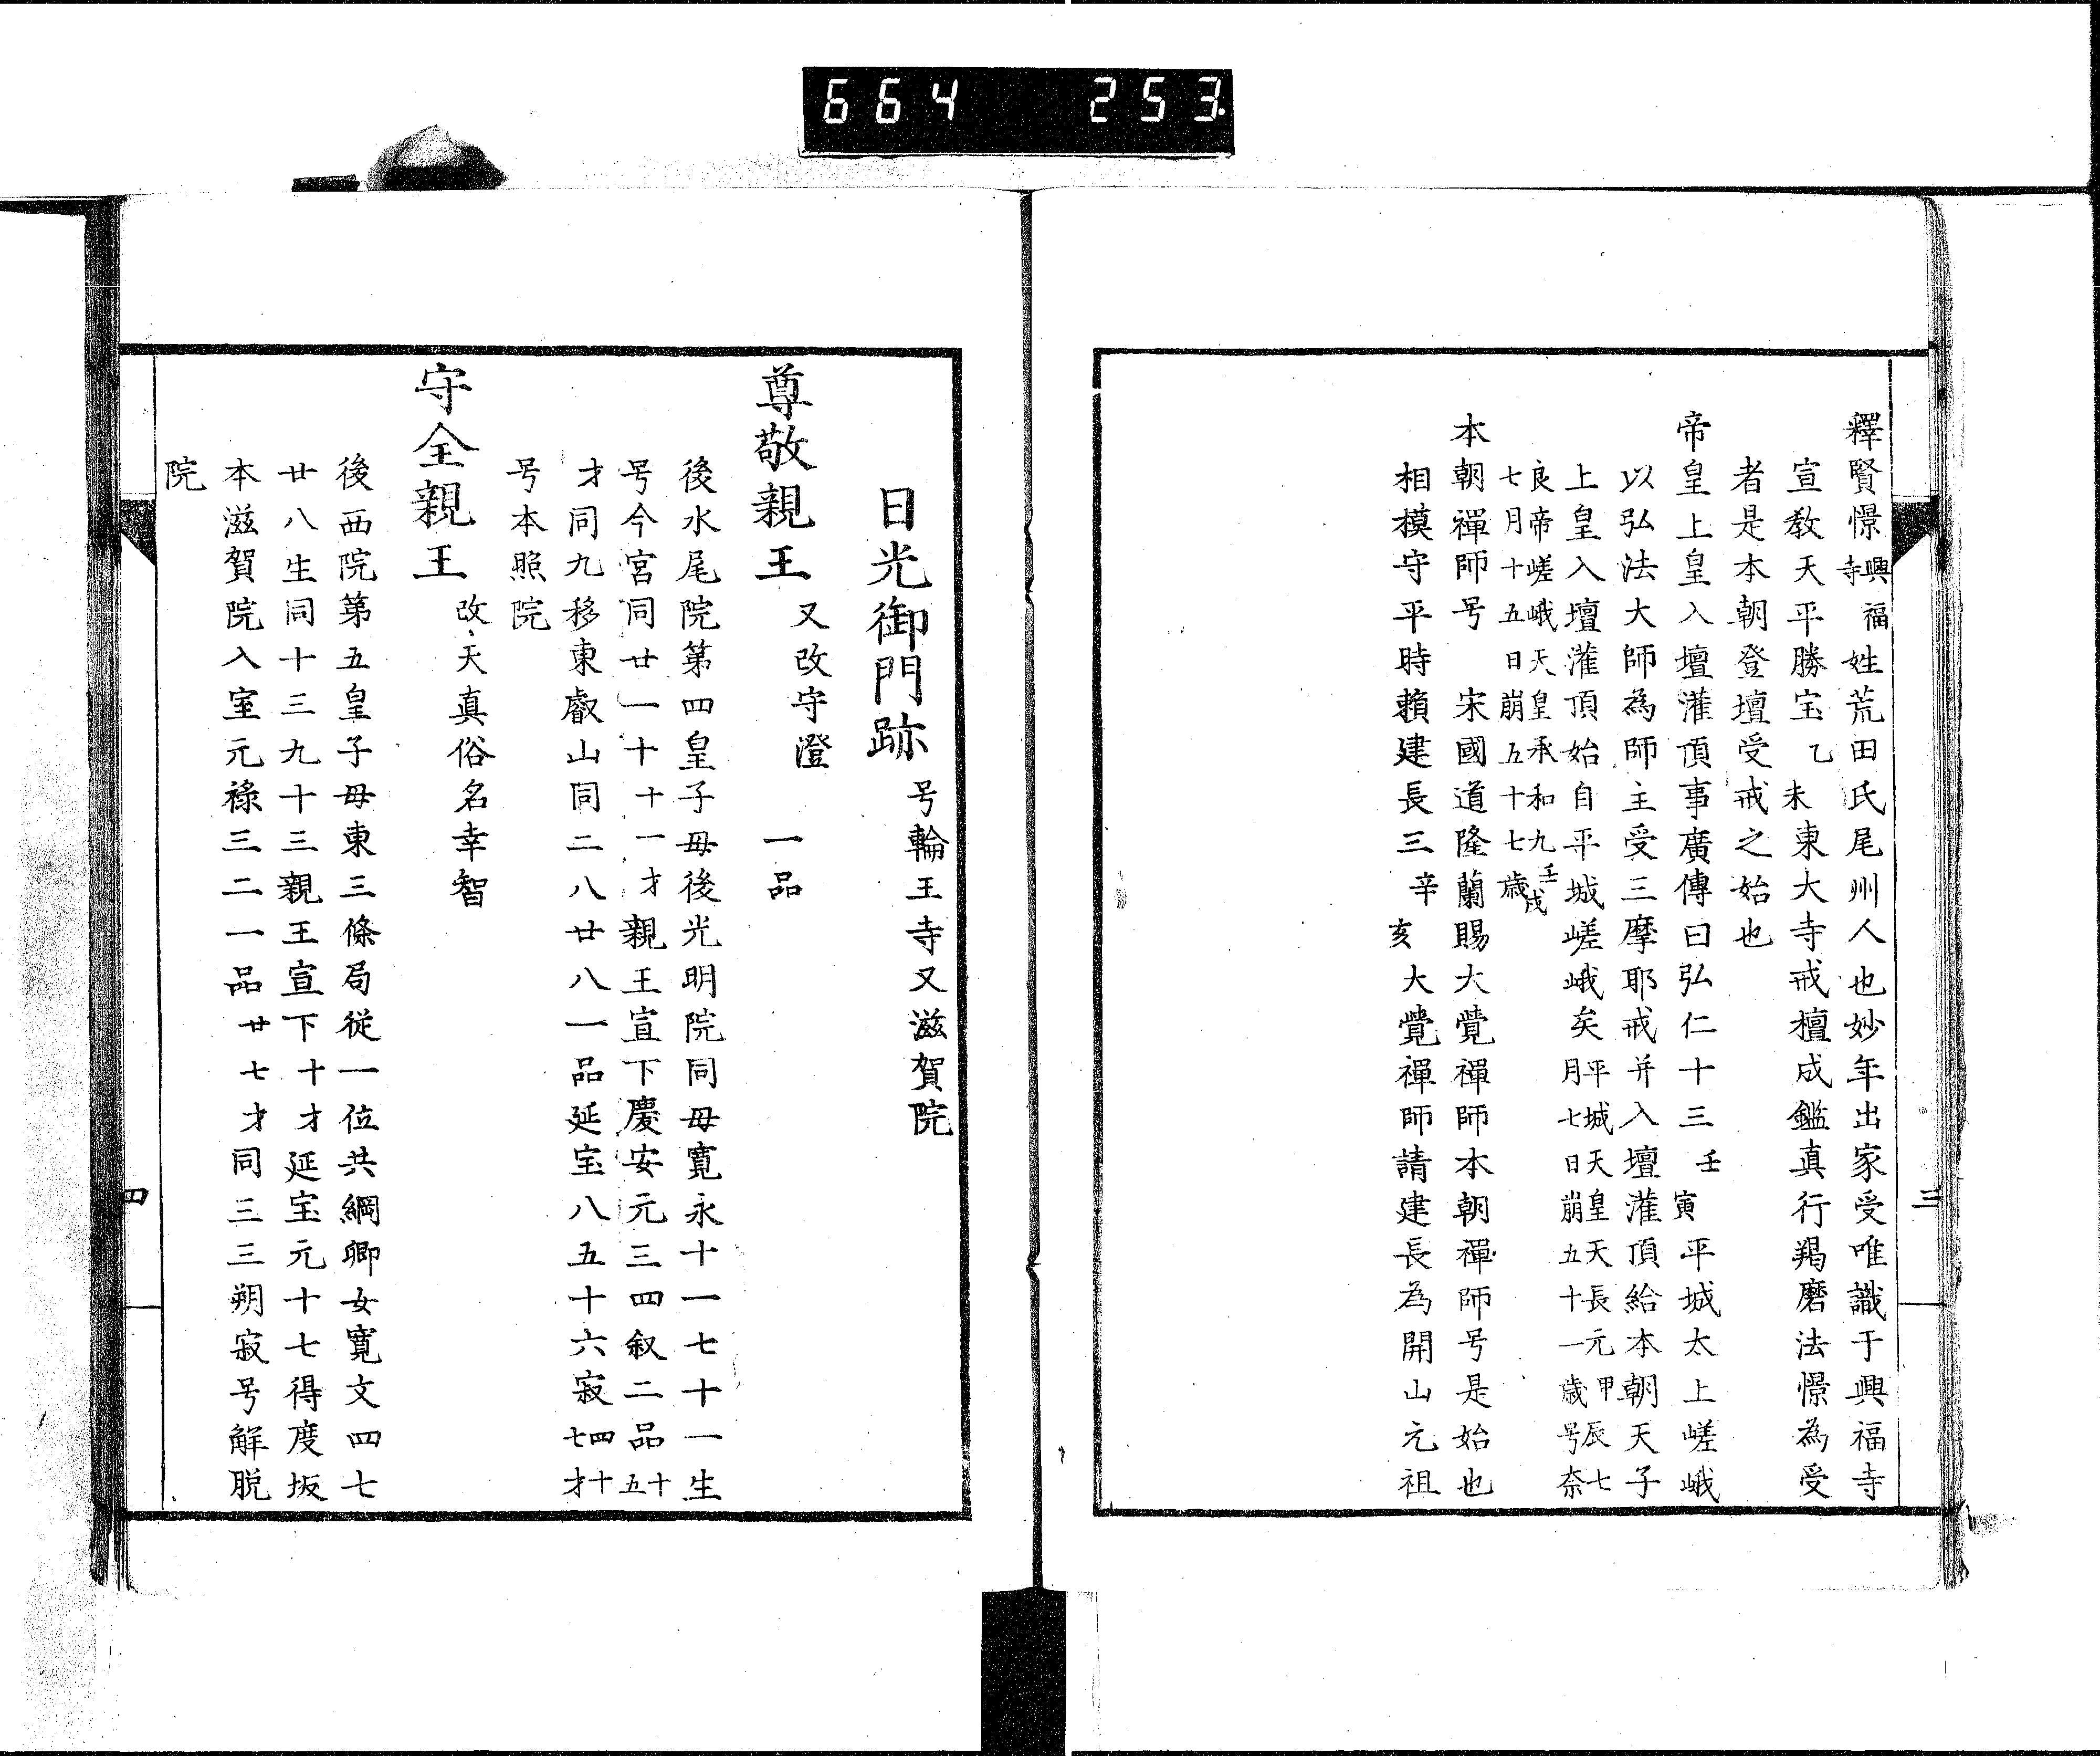 664 253.
釋賢憬興福寺姓荒田氏尾州人也妙年出家受唯識于興福寺
宣教天平勝宝乙未東大寺戒檀成鑑真行羯磨法憬為受
者是本朝登壇受戒之始也
帝皇上皇入壇灌頂事廣傳曰弘仁十三壬寅平城太上嵯峨
以弘法大師為師主受三摩耶戒并入壇灌頂給本朝天子
上皇入壇灌頂始自平城嵯峨矣平城天皇天長元甲辰七月七日崩五十一歳号奈
良帝嵯峨天皇承和九壬戌七月十五日崩五十七歳
本朝禪師号 宋國道隆蘭賜大覺禪師本朝禪師号是始也
相模守平時賴建長三辛亥大覺禪師請建長為開山元祖
三
日光御門跡 号輪王寺又滋賀院
尊敬親王 又改守澄 一品
後水尾院第四皇子母後光明院同母寛永十一七十一生
号今宮同廿一十十一才親王宣下慶安元三四叙二品十五
才同九移東叡山同二八廿八一品延宝八五十六寂四十七才
号本照院
守全親王 改天真俗名幸智
後西院第五皇子母東三條局従一位共綱卿女寛文四七
廿八生同十三九十三親王宣下十才延宝元十七得度坂
本滋賀院入室元祿三二一品廿七才同三三朔寂号解脱
院
四